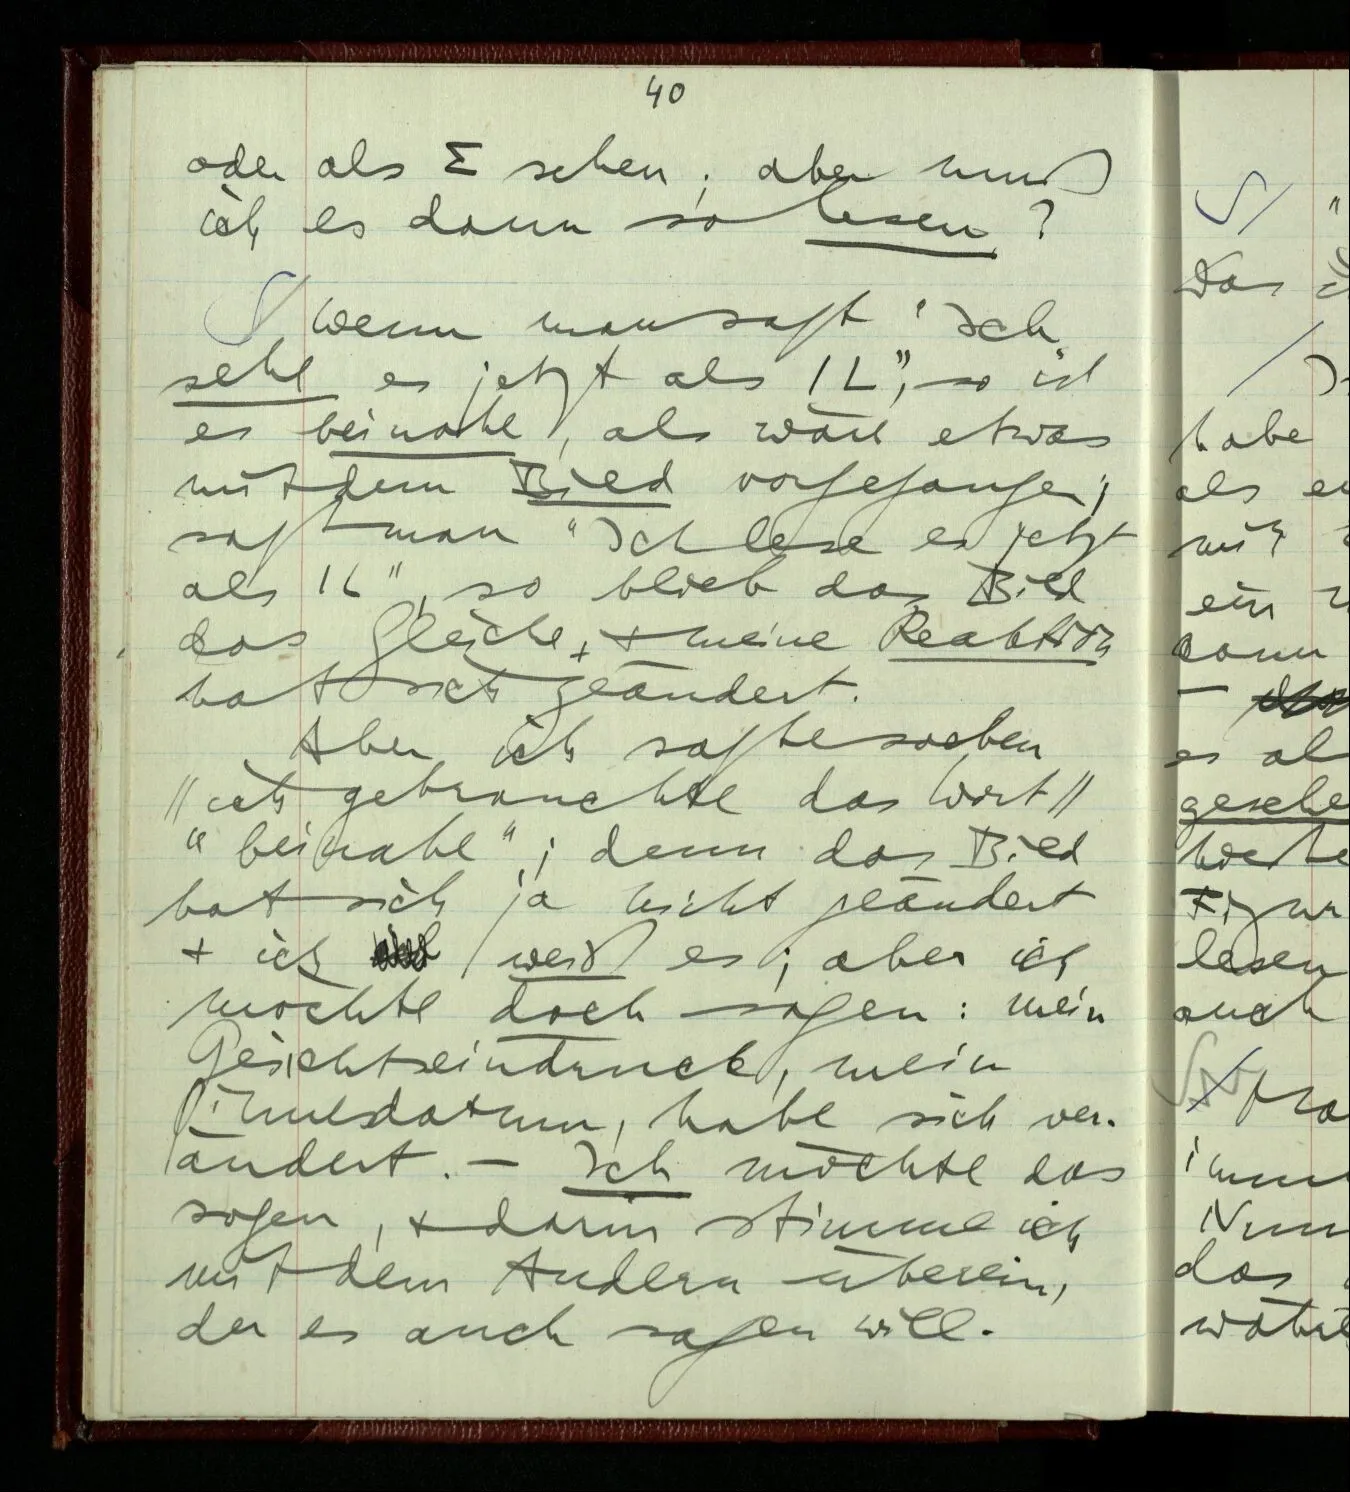 40
oder als Σ sehen; aber muß
ich es dann so lesen?
S/ Wenn man sagt "Ich
sehe es jetzt als IL", so ist
es beinahe, als wäre etwas
mit dem Bild vorgegangen;
sagt man "Ich lese es jetzt
als IL", so blieb das Bild
das Gleiche, + meine Reaktion
hat sich geändert.
Aber ich sagte soeben
// ich gebrauchte das Wort //
"beinahe"; denn das Bild
hat sich ja nicht geändert
+ ich weiß es; aber ich
möchte doch sagen: mein
Gesichtseindruck, mein
Sinnesdatum, habe sich ver-
ändert. – Ich möchte das
sagen, + darin stimme ich
mit dem Andern überein,
der es auch sagen will.
S/ "
Das
/
habe
als
mir
ein
kann
–
es al
gesehe
Figur
lesen
auch
das